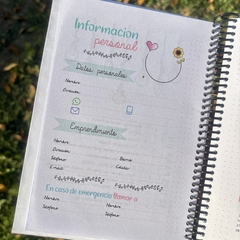 Informacion
personal
Datos personales
Nombre
Dirección
Emprendimiento
Nombre
Dirección
Teléfono
Barrio
E-mail
Ciudad
En caso de emergencia llamar a
Nombre
Nombre
Teléfono
Teléfono